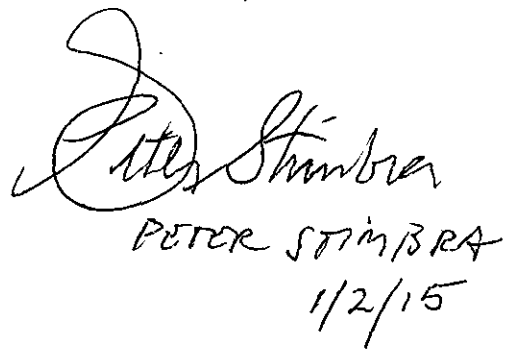 Peter Stimbra
PETER STIMBRA
1/2/15